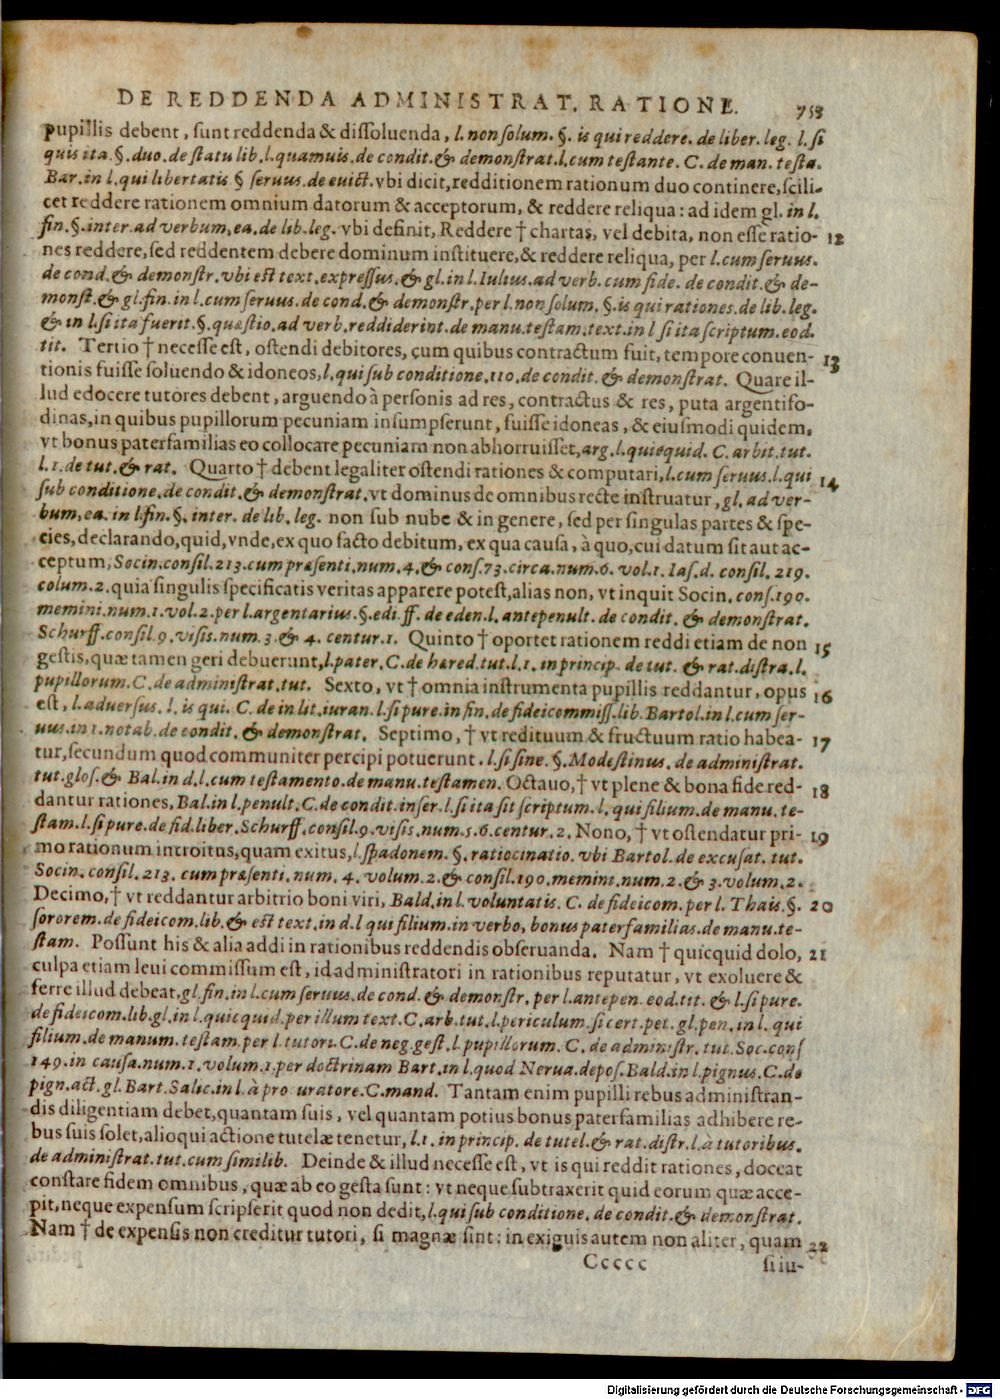 DE REDDENDA ADMINISTRAT. RATIONE. 753
pupillis debent, sunt reddenda & dissoluenda, l. non solum. §. is qui reddere. de liber. leg. l. si
quis ita. §. duo. de statu lib. l. quamuis. de condit. & demonstrat. l. cum testante. C. de man. testa.
Bar. in l. qui libertatis § seruus. de euict. vbi dicit, redditionem rationum duo continere, scili-
cet reddere rationem omnium datorum & acceptorum, & reddere reliqua: ad idem gl. in l.
fin. §. inter. ad verbum, ea. de lib. leg. vbi definit, Reddere † chartas, vel debita, non esse ratio- 12
nes reddere, sed reddentem debere dominum instituere, & reddere reliqua, per l. cum seruus.
de cond. & demonstr. vbi est text. expressus. & gl. in l. Iulius. ad verb. cum fide. de condit. & de-
monst. & gl. fin. in l. cum seruus. de cond. & demonstr. per l. non solum. §. is qui rationes. de lib. leg.
& in l. si ita fuerit. §. quæstio. ad verb. reddiderint. de manu. testam. text. in l si ita scriptum. eod.
tit. Tertio † necesse est, ostendi debitores, cum quibus contractum fuit, tempore conuen- 13
tionis fuisse soluendo & idoneos, l. qui sub conditione. 110. de condit. & demonstrat. Quare il-
lud edocere tutores debent, arguendo à personis ad res, contractus & res, puta argentifo-
dinas, in quibus pupillorum pecuniam insumpserunt, fuisse idoneas, & eiusmodi quidem,
vt bonus paterfamilias eo collocare pecuniam non abhorruisset, arg. l. quicquid. C. arbit. tut.
l. 1. de tut. & rat. Quarto † debent legaliter ostendi rationes & computari, l. cum seruus. l. qui 14
sub conditione. de condit. & demonstrat. vt dominus de omnibus recte instruatur, gl. ad ver-
bum, ea. in l. fin. §. inter. de lib. leg. non sub nube & in genere, sed per singulas partes & spe-
cies, declarando, quid, vnde, ex quo facto debitum, ex qua causa, à quo, cui datum sit aut ac-
ceptum, Socin. consil. 213. cum præsenti. num. 4. & cons. 73. circa. num. 6. vol. 1. Ias. d. consil. 219.
colum. 2. quia singulis specificatis veritas apparere potest, alias non, vt inquit Socin. cons. 190.
memini. num. 1. vol. 2. per l. argentarius. §. edi. ff. de eden. l. antepenult. de condit. & demonstrat.
Schurff. consil. 9. visis. num. 3. & 4. centur. 1. Quinto † oportet rationem reddi etiam de non 15
gestis, quæ tamen geri debuerunt, l. pater. C. de hæred. tut. l. 1. in princip. de tut. & rat. distra. l.
pupillorum. C. de administrat. tut. Sexto, vt † omnia instrumenta pupillis reddantur, opus 16
est, l. aduersus. l. is qui. C. de in lit. iuran. l. si pure. in fin. de fideicommiss. lib. Bartol. in l. cum ser-
uus. in 1. notab. de condit. & demonstrat. Septimo, † vt redituum & fructuum ratio habea- 17
tur, secundum quod communiter percipi potuerunt. l. si sine. §. Modestinus. de administrat.
tut. glos. & Bal. in d. l. cum testamento. de manu. testamen. Octauo, † vt plene & bona fide red- 18
dantur rationes, Bal. in l. penult. C. de condit. inser. l. si ita sit scriptum. l. qui filium. de manu. te-
stam. l. si pure. de fid. liber. Schurff. consil. 9. visis. num. 5. 6. centur. 2. Nono, † vt ostendatur pri- 19
mo rationum introitus, quam exitus, l. spadonem. §. ratiocinatio. vbi Bartol. de excusat. tut.
Socin. consil. 213. cum præsenti. num. 4. volum. 2. & consil. 190. memini. num. 2. & 3. volum. 2.
Decimo, † vt reddantur arbitrio boni viri, Bald. in l. voluntatis. C. de fideicom. per l. Thais. §. 20
sororem. de fideicom. lib. & est text. in d. l qui filium. in verbo, bonus paterfamilias. de manu. te-
stam. Possunt his & alia addi in rationibus reddendis obseruanda. Nam † quicquid dolo, 21
culpa etiam leui commissum est, id administratori in rationibus reputatur, vt exoluere &
ferre illud debeat, gl. fin. in l. cum seruus. de cond. & demonstr. per l. antepen. eod. tit. & l. si pure.
de fideicom. lib. gl. in l. quicquid. per illum text. C. arb. tut. l. periculum. si cert. pet. gl. pen. in l. qui
filium. de manum. testam. per l. tutori. C. de neg. gest. l. pupillorum. C. de administr. tut. Soc. cons
149. in causa. num. 1. volum. 1. per doctrinam Bart. in l. quod Nerua. depos. Bald. in l. pignus. C. de
pign. act. gl. Bart. Salic. in l. à pro uratore. C. mand. Tantam enim pupilli rebus administran-
dis diligentiam debet, quantam suis, vel quantam potius bonus paterfamilias adhibere re-
bus suis solet, alioqui actione tutelæ tenetur, l. 1. in princip. de tutel. & rat. distr. l. à tutoribus.
de administrat. tut. cum similib. Deinde & illud necesse est, vt is qui reddit rationes, doceat
constare fidem omnibus, quæ ab eo gesta sunt: vt neque subtraxerit quid eorum quæ acce-
pit, neque expensum scripserit quod non dedit, l. qui sub conditione. de condit. & demonstrat.
Nam † de expensis non creditur tutori, si magnæ sint: in exiguis autem non aliter, quam 22
Ccccc si iu-
Digitalisierung gefördert durch die Deutsche Forschungsgemeinschaft - DFG